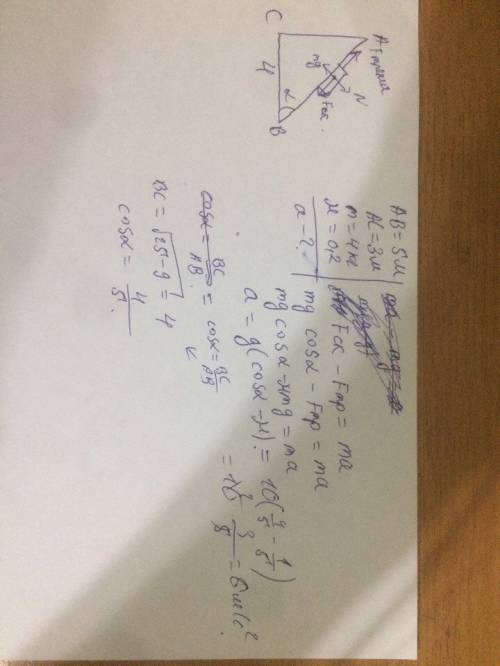 C
A
Fтрения
N
mg
Fск
4
α
B
AB = 5м
AC = 3м
m = 4кг
μ = 0,2
a - ?
Fск - Fтр = ma
mg cosα - Fтр = ma
mg cosα - μmg = ma
a = g(cosα - μ) = 10(4/5 - 1/5)
= 10 3/5 = 6м/с²
cosα = BC/AB = cosα = BC/AB
BC = √25-9 = 4
cosα = 4/5